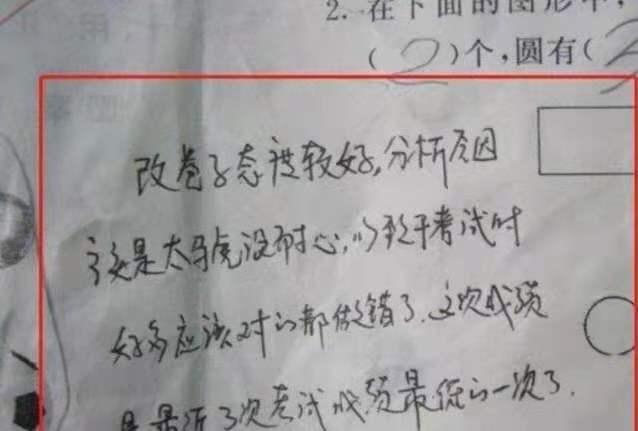 2. 在下面的图形中,
( 2 )个,圆有( 3
改卷子态度较好,分析原因
应该是太马虎没有耐心,以致于考试时
好多应该对的都做错了.这次成绩
是最近3次考试成绩最低的一次了.